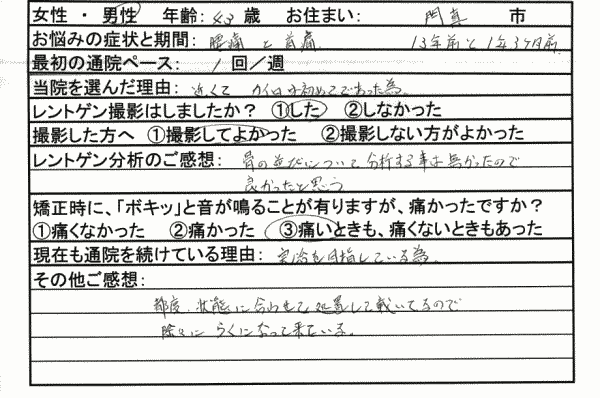 女性 ・ 男性　年齢: 43 歳　お住まい: 門真 市
お悩みの症状と期間: 腰痛 と 首痛　13年前と1年3ヶ月前
最初の通院ペース: 1 回／週
当院を選んだ理由: 近くて カイロが初めてであった為。
レントゲン撮影はしましたか？ ①した　②しなかった
撮影した方へ ①撮影してよかった　②撮影しない方がよかった
レントゲン分析のご感想: 骨の並びについて分析する事は無かったので
良かったと思う
矯正時に、「ボキッ」と音が鳴ることが有りますが、痛かったですか？
①痛くなかった　②痛かった　③痛いときも、痛くないときもあった
現在も通院を続けている理由: 完治を目指している為。
その他ご感想:
都度、状態に合わせて処置して戴いてるので
除々に らくになって来ている。